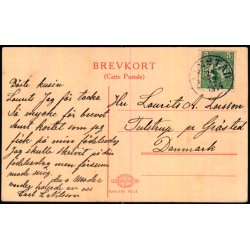 BREVKORT
(Carte Postale)
Bäste kusin
Laurits Jeg får tacka
Så mycke för brevet
samt kortet som jag
fick på min födelsedag
Jag skulle skrivit på din
födelsedag men försum
mede mig,
Carl L Nilsson
Hr Laurits A. Larsson
Tulstrup pr Græsted
Danmark